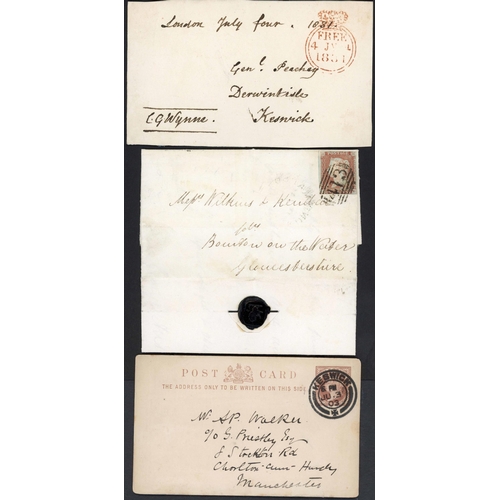 London July four, 1831.
FREE
4 JY
1831
Genl. Peachey
Derwintisle
Keswick
C G Wynne.
Messrs Wilkins & Kendall
Bourton on the Water
Gloucestershire
POST CARD
THE ADDRESS ONLY TO BE WRITTEN ON THIS SIDE
KESWICK
PM
JU 3
03
Mr. S.P. Walker
c/o G. Priestley Esq
8 Stockton Rd
Chorlton-cum-Hardy
Manchester